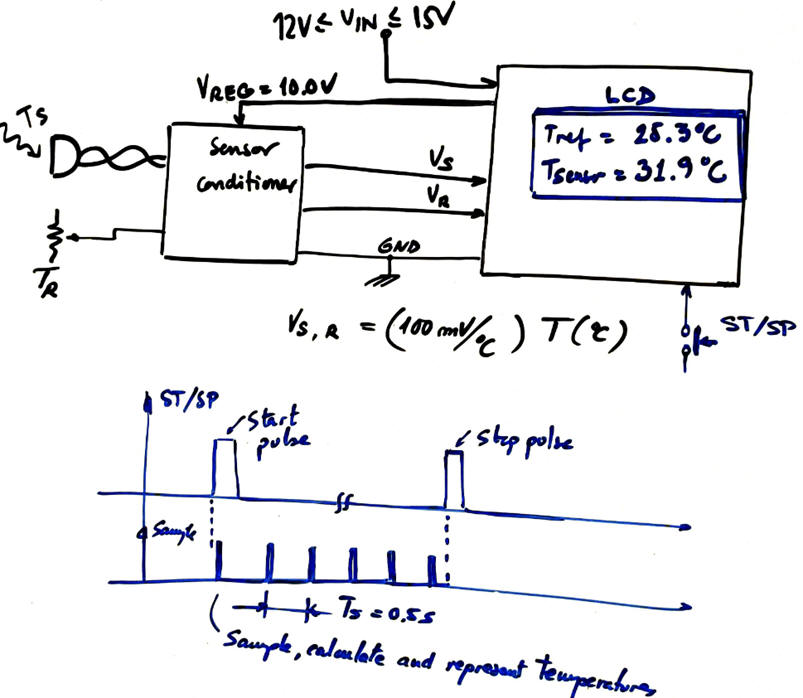 12V ≤ VIN ≤ 15V
VREG = 10.0V
LCD
Tref = 28.3°C
Tsensor = 31.9°C
TS
Sensor
conditioner
VS
VR
GND
TR
VS,R = (100 mV/°C) T(°C)
ST/SP
ST/SP
Start
pulse
Stop pulse
Sample
Ts = 0.5s
Sample, calculate and represent Temperatures